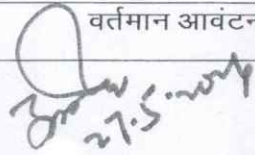 वर्तमान आवंटन
27.5.2024